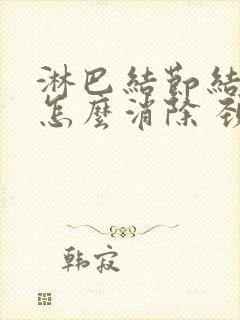 淋巴結節結
怎麼消除
韩寂